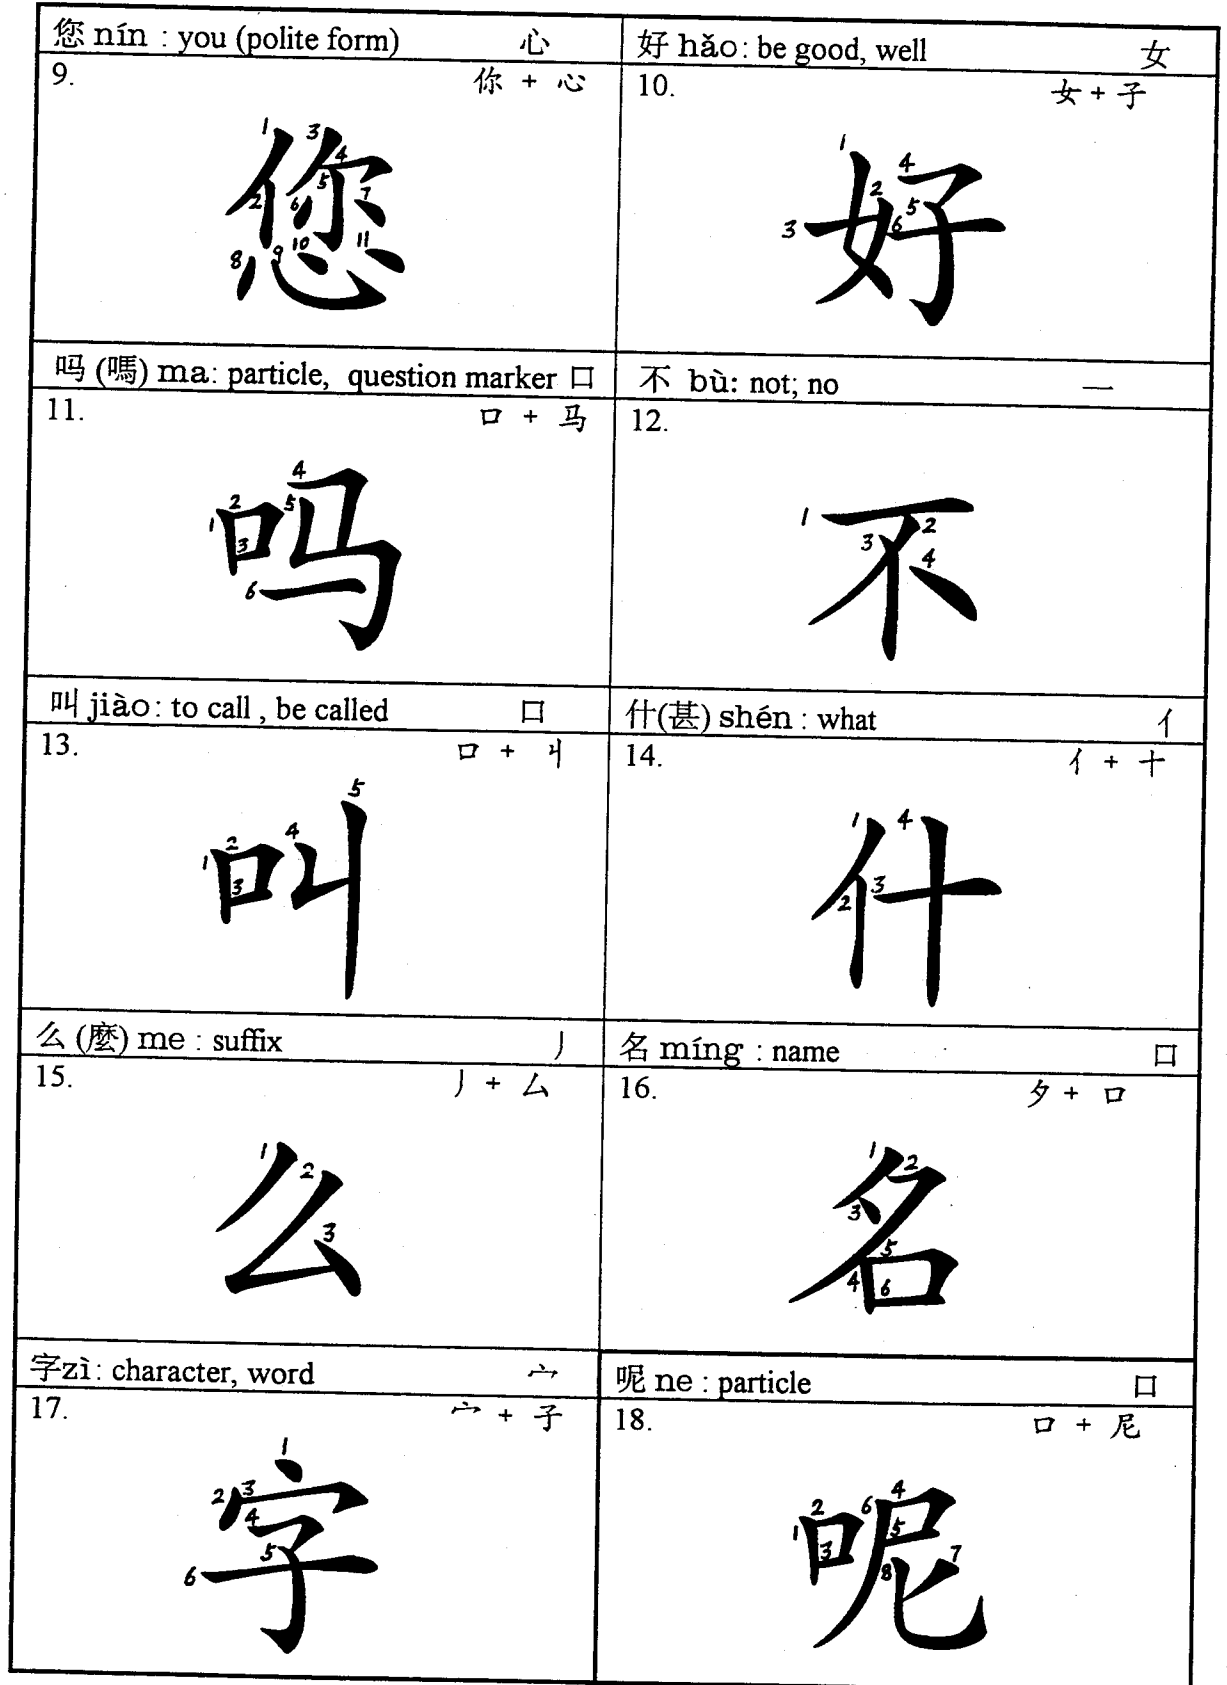 您 nín : you (polite form) 心
9. 你 + 心
1 3 4 2 5 6 7 8 9 10 11
您
好 hǎo: be good, well 女
10. 女 + 子
1 4 2 5 3 6
好
吗 (嗎) ma: particle, question marker 口
11. 口 + 马
4 2 5 1 3 6
吗
不 bù: not; no 一
12.
1 2 3 4
不
叫 jiào: to call , be called 口
13. 口 + 丩
5 2 4 1 3
叫
什(甚) shén : what 亻
14. 亻 + 十
1 4 3 2
什
么 (麼) me : suffix 丿
15. 丿 + 厶
1 2 3
么
名 míng : name 口
16. 夕 + 口
1 2 3 5 4 6
名
字zì: character, word 宀
17. 宀 + 子
1 2 3 4 5 6
字
呢 ne : particle 口
18. 口 + 尼
4 2 6 1 5 3 7 8
呢